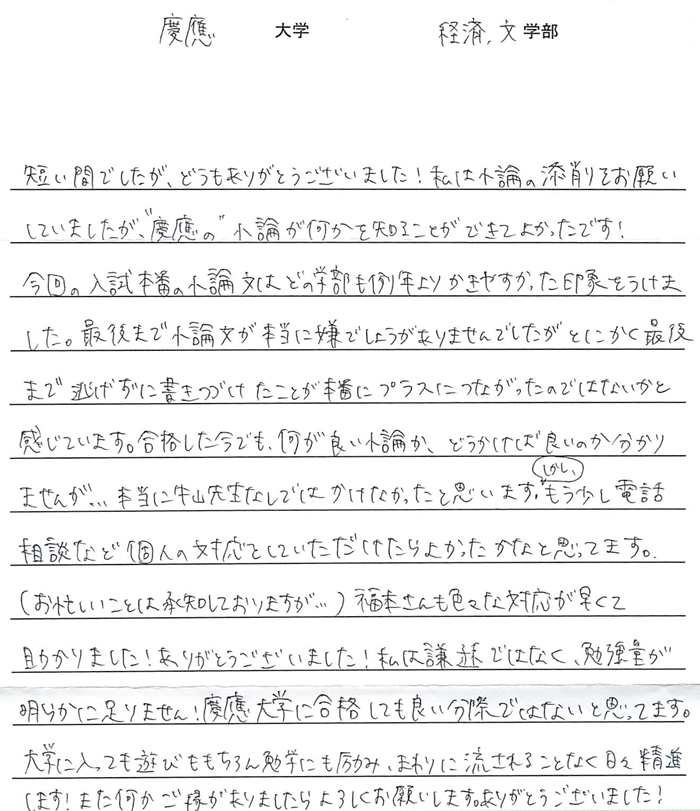 慶應 大学 経済,文学部
短い間でしたが、どうもありがとうございました！私は小論の添削をお願い
していましたが、"慶應の"小論が何かを知ることができてよかったです！
今回の入試本番の小論文はどの学部も例年よりかきやすかった印象をうけま
した。最後まで小論文が本当に嫌でしょうがありませんでしたがとにかく最後
まで逃げずに書きつづけたことが本番にプラスにつながったのではないかと
感じています。合格した今でも、何が良い小論か、どうかけば良いのか分かり
ませんが…本当に牛山先生なしではかけなかったと思います。しかし、もう少し電話
相談など個人の対応をしていただけたらよかったかなと思ってます。
(お忙しいことは承知しておりますが…)福本さんも色々な対応が早くて
助かりました！ありがとうございました！私は謙遜ではなく、勉強量が
明らかに足りません！慶應大学に合格しても良い分際ではないと思ってます。
大学に入っても遊びももちろん勉学にも励み、まわりに流されることなく日々精進
します！また何かご縁がありましたらよろしくお願いします。ありがとうございました！